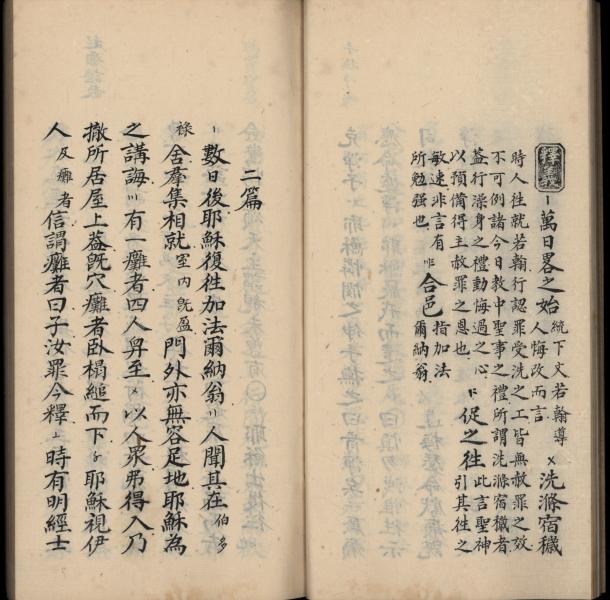 釋義
萬日畧之始 統下文若翰導人悔改而言 洗滌宿穢
時人往就若翰行認罪受洗之工皆無赦罪之效
不可例諸今日教中聖事之禮所謂洗滌宿穢者
蓋行澡身之禮動悔過之心
以預備得主赦罪之恩也 促之往 此言聖神引其徃之
敏速非言有
所勉强也 合邑 指加法爾納翁
二篇
數日後耶穌復徃加法爾納翁 人聞其在 伯多
祿 舍羣集相就 室內既盈 門外亦無容足地耶穌為
之講誨 有一癱者四人舁至 以人衆弗得入乃
撤所居屋上蓋既穴癱者卧榻縋而下 耶穌視伊
人 及癱者 信謂癱者曰子汝罪今釋 時有明經士